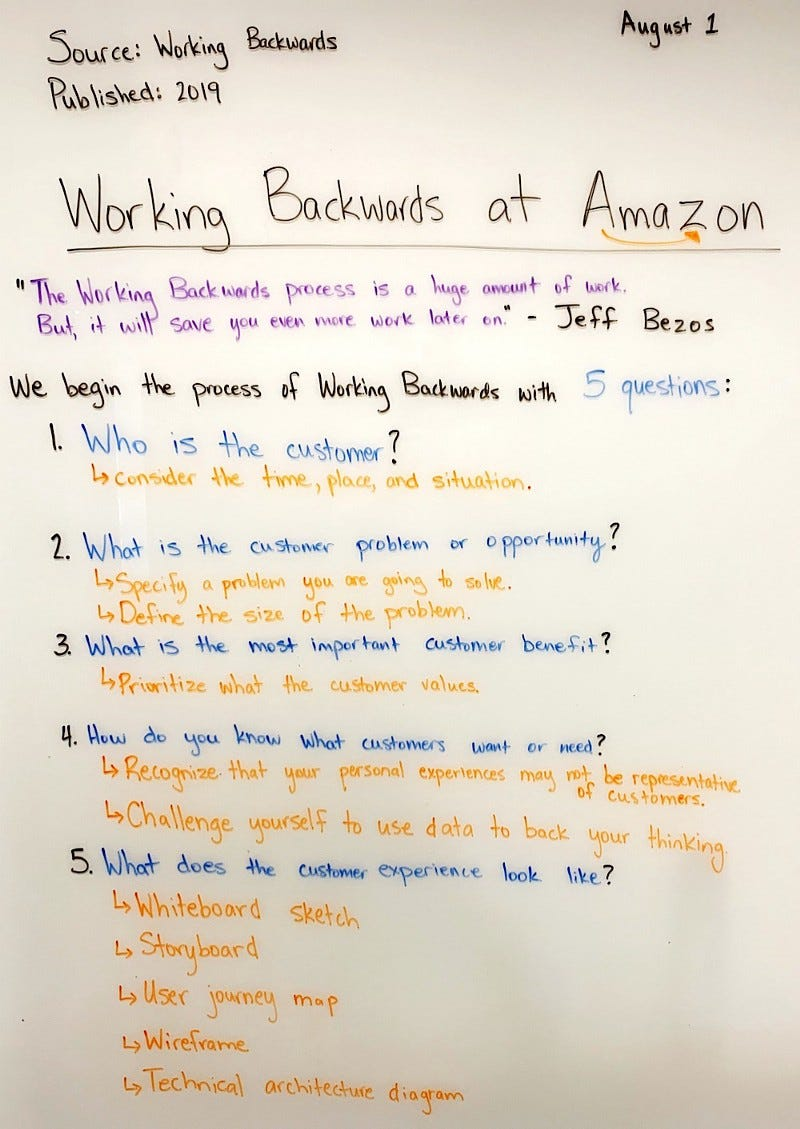 August 1
Source: Working Backwards
Published: 2019
Working Backwards at Amazon
"The Working Backwards process is a huge amount of work.
But, it will save you even more work later on." - Jeff Bezos
We begin the process of Working Backwards with 5 questions:
1. Who is the customer?
↳ consider the time, place, and situation.
2. What is the customer problem or opportunity?
↳ Specify a problem you are going to solve.
↳ Define the size of the problem.
3. What is the most important customer benefit?
↳ Prioritize what the customer values.
4. How do you know what customers want or need?
↳ Recognize that your personal experiences may not be representative
of customers.
↳ Challenge yourself to use data to back your thinking.
5. What does the customer experience look like?
↳ Whiteboard sketch
↳ Storyboard
↳ User journey map
↳ Wireframe
↳ Technical architecture diagram